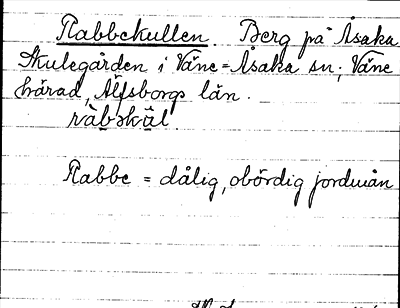 Rabbekullen. Berg på Åsaka
Skulegården i Väne-Åsaka sn; Väne
härad, Älfsborgs län.
räbskäl

Rabbe = dålig, obördig jordmån